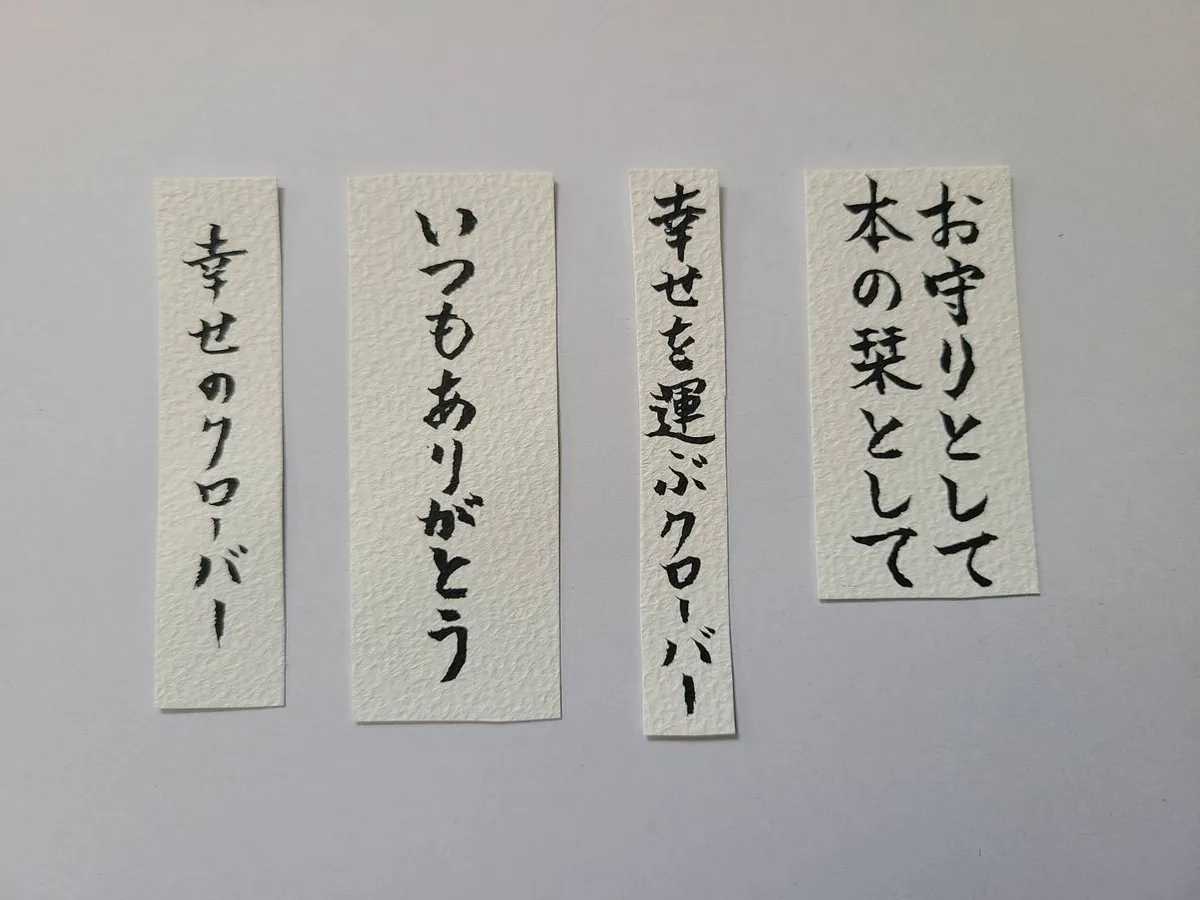 幸せのクローバー
いつもありがとう
幸せを運ぶクローバー
お守りとして
本の栞として